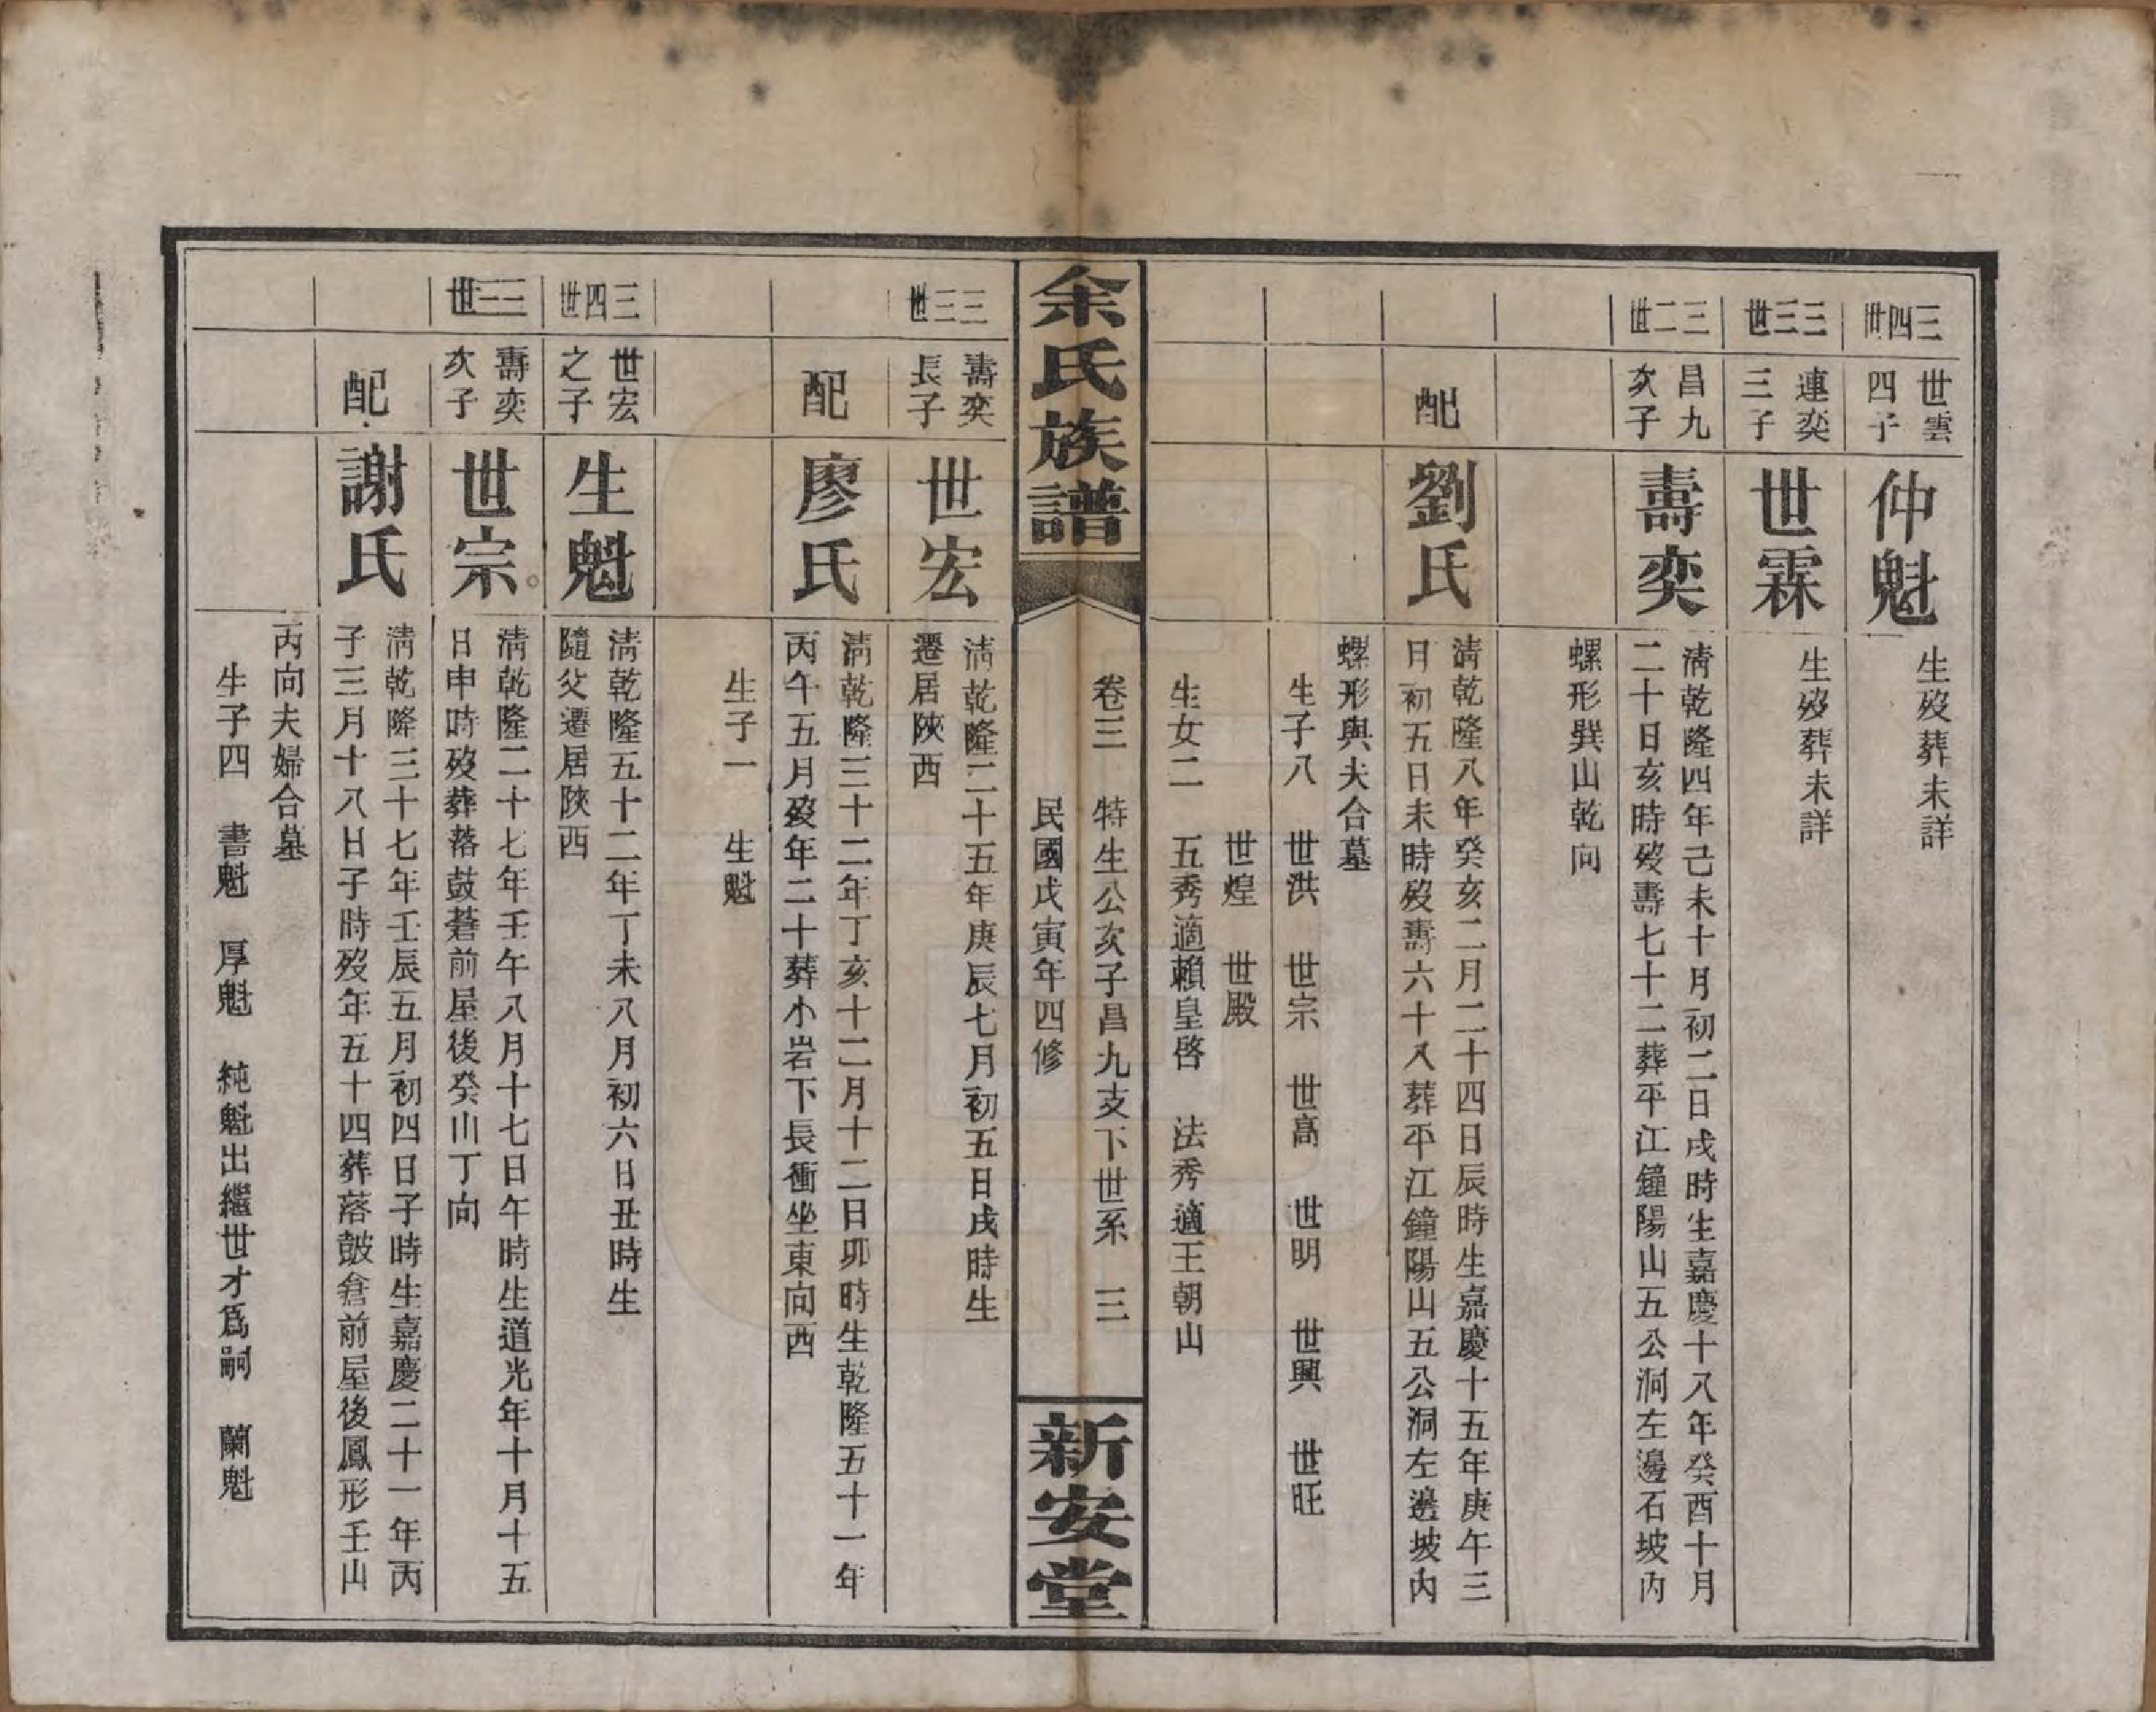 三四世
世雲四子
仲魁
生歿葬未詳
三三世
連奕三子
世霖
生歿葬未詳
三二世
昌九次子
壽奕
清乾隆四年己未十月初二日戌時生嘉慶十八年癸酉十月
二十日亥時歿壽七十二葬平江鐘陽山五公洞左邊石坡內
螺形巽山乾向
配
劉氏
清乾隆八年癸亥二月二十四日辰時生嘉慶十五年庚午三
月初五日未時歿壽六十八葬平江鐘陽山五公洞左邊坡內
螺形與夫合墓
生子八 世洪 世宗 世高 世明 世興 世旺
世煌 世殿
生女二 五秀適賴皇啓 法秀適王朝山
余氏族譜
卷三 特生公次子昌九支下世系 三
民國戊寅年四修
新安堂
三三世
壽奕長子
世宏
清乾隆二十五年庚辰七月初五日戌時生
遷居陝西
配
廖氏
清乾隆三十二年丁亥十二月十二日卯時生乾隆五十一年
丙午五月歿年二十葬小岩下長衝坐東向西
生子一 生魁
三四世
世宏之子
生魁
清乾隆五十二年丁未八月初六日丑時生
隨父遷居陝西
三三世
壽奕次子
世宗
清乾隆二十七年壬午八月十七日午時生道光年十月十五
日申時歿葬落鼓砻前屋後癸山丁向
配
謝氏
清乾隆三十七年壬辰五月初四日子時生嘉慶二十一年丙
子三月十八日子時歿年五十四葬落鼓前屋後鳳形壬山
丙向夫婦合墓
生子四 書魁 厚魁 純魁出繼世才爲嗣 蘭魁